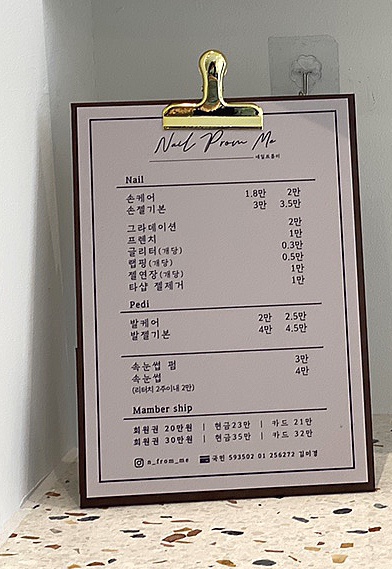 Nail From Me
네일프롬미
Nail
손케어 1.8만 2만
손젤기본 3만 3.5만
그라데이션 2만
프렌치 1만
글리터(개당) 0.3만
랩핑(개당) 0.5만
젤연장(개당) 1만
타샵 젤제거 1만
Pedi
발케어 2만 2.5만
발젤기본 4만 4.5만
속눈썹 펌 3만
속눈썹 4만
(리터치 2주이내 2만)
Mamber ship
회원권 20만원 | 현금23만 | 카드 21만
회원권 30만원 | 현금35만 | 카드 32만
n_from_me 국민 593502 01 256272 김미경